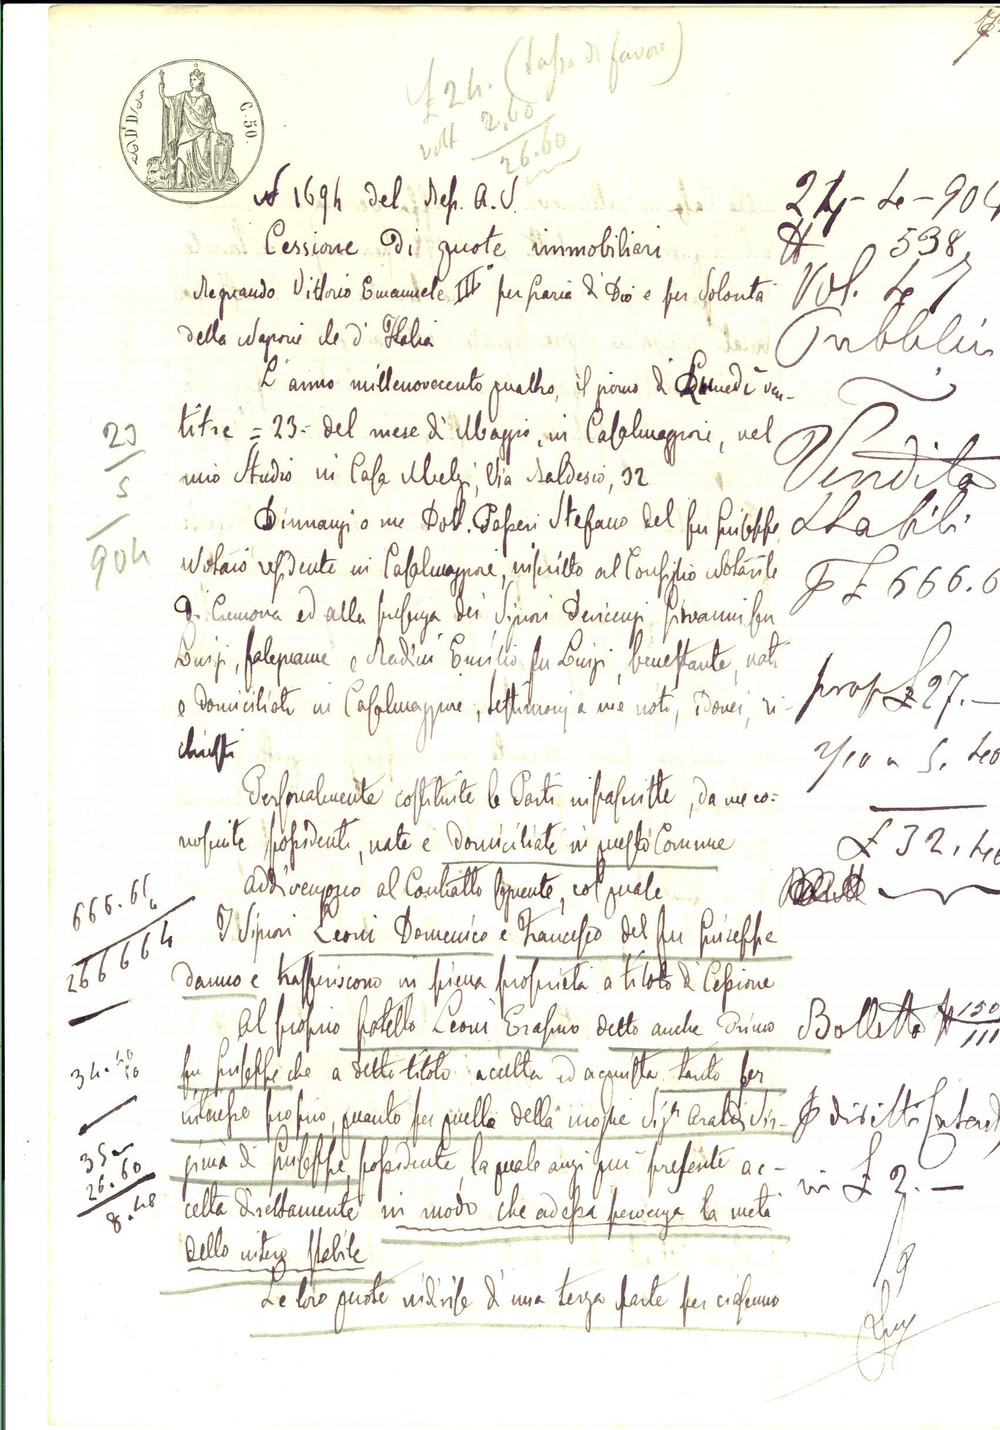 C. 50.
£ 24. (tassa di favore)
2.60
26.60
N 1694 del Rep. A. V.
Cessione di quote immobiliari
Regnando Vittorio Emanuele III° per grazia di Dio e per volontà
della Nazione Re d'Italia
L'anno millenovecento quattro, il giorno di Lunedì ven-
titre = 23 = del mese di Maggio, in Casalmaggiore, nel
mio Studio in Casa Melzi, Via Baldesio, 32
Dinnanzi a me Dott. Stefano del fu Giuseppe
Notaio residente in Casalmaggiore, inscritto al Consiglio Notarile
di Cremona ed alla presenza dei Signori Giovanni fu
Luigi, falegname e Radini Emilio fu Luigi, benestante, nati
e domiciliati in Casalmaggiore, testimonj a me noti, idonei, ri-
chiesti
Personalmente costituite le Parti infrascritte, da me co-
nosciute possidenti, nate e domiciliate in questo Comune
addivengono al Contratto seguente, col quale
I Signori Leoni Domenico e Francesco del fu Giuseppe
danno e trasferiscono in piena proprietà a titolo di Cessione
Al proprio fratello Leoni Erasmo detto anche Primo
fu Giuseppe che a detto titolo accetta ed acquista tanto per
interesse proprio, quanto per quello della moglie Sigra Araldi Vir-
ginia di Giuseppe, possidente, la quale anzi qui presente ac-
cetta direttamente in modo che ad essa pervenga la metà
dello intero stabile
Le loro quote indivise di una terza parte per ciascuno
23
5
904
666.66
266664
34.40
35
26.60
8.40
24-4-904
N 538
Vol. 47
Pubblici
Vendita
Stabili
p £ 666.6
prop £ 27.-
2/10 a 5.40
£ 32.40
Bolletta N 150
III
p diritti Catast
in £ 2.-